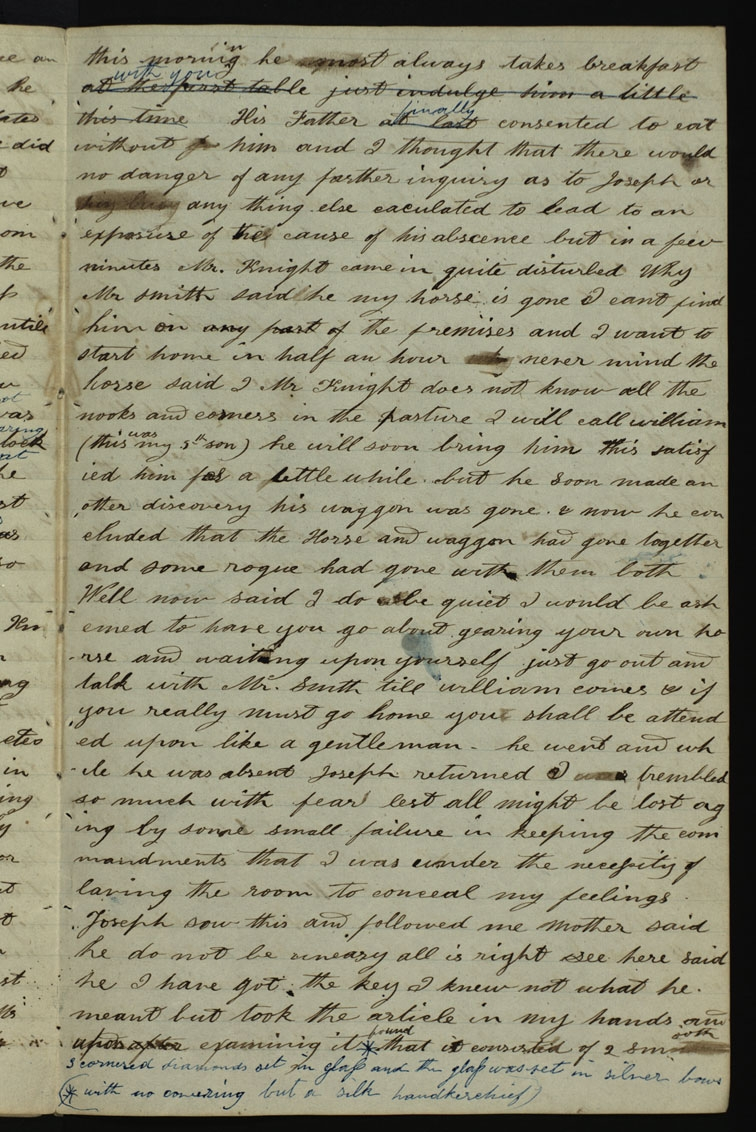 this morning he most always takes breakfast
with you
at the first table just indulge him a little
finally
this time His Father at last consented to eat
without him and I thought that there would
no danger of any farther inquiry as to Joseph or
any thing else caculated to lead to an
exposure of the cause of his abscence but in a few
minutes Mr. Knight came in quite disturbed Why
Mr Smith said he my horse is gone I cant find
him on any part of the premises and I want to
start home in half an hour never mind the
horse said I Mr Knight does not know all the
nooks and corners in the pasture I will call william
was
(this my 5th son) he will soon bring him this satisf
ied him for a little while but he soon made an
other discovery his waggon was gone. & now he con
cluded that the Horse and waggon had gone together
and some rogue had gone with them both
Well now said I do be quiet I would be ash
emed to have you go about gearing your own ho
-rse and waiting upon yourself just go out and
talk with Mr. Smith till william comes & if
you really must go home you shall be attend
ed upon like a gentleman - he went and wh
-ile he was absent Joseph returned I trembled
so much with fear lest all might be lost ag
ing by some small failure in keeping the com
mandments that I was under the necessity of
laving the room to conceal my feelings
Joseph saw this and followed me Mother said
he do not be uneasy all is right see here said
he I have got the key I knew not what he
meant but took the article in my hands and
found
upon after examining it * that it consisted of 2 smooth
3 cornered diamonds set in glass and the glass was set in silver bows
(* with no covering but a silk handkerchief)